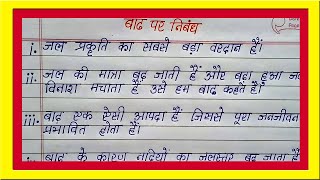 बाढ़ पर निबंध
i. जल प्रकृति का सबसे बड़ा वरदान हैं।
ii. जल की मात्रा बढ़ जाती हैं और बढ़ा हुआ
विनाश मचाता हैं उसे हम बाढ़ कहते हैं।
iii. बाढ़ एक ऐसी आपदा हैं जिससे पूरा जनजीवन
प्रभावित होता हैं।
बाढ़ के कारण नदियों का जलस्तर बढ़ जाता हैं